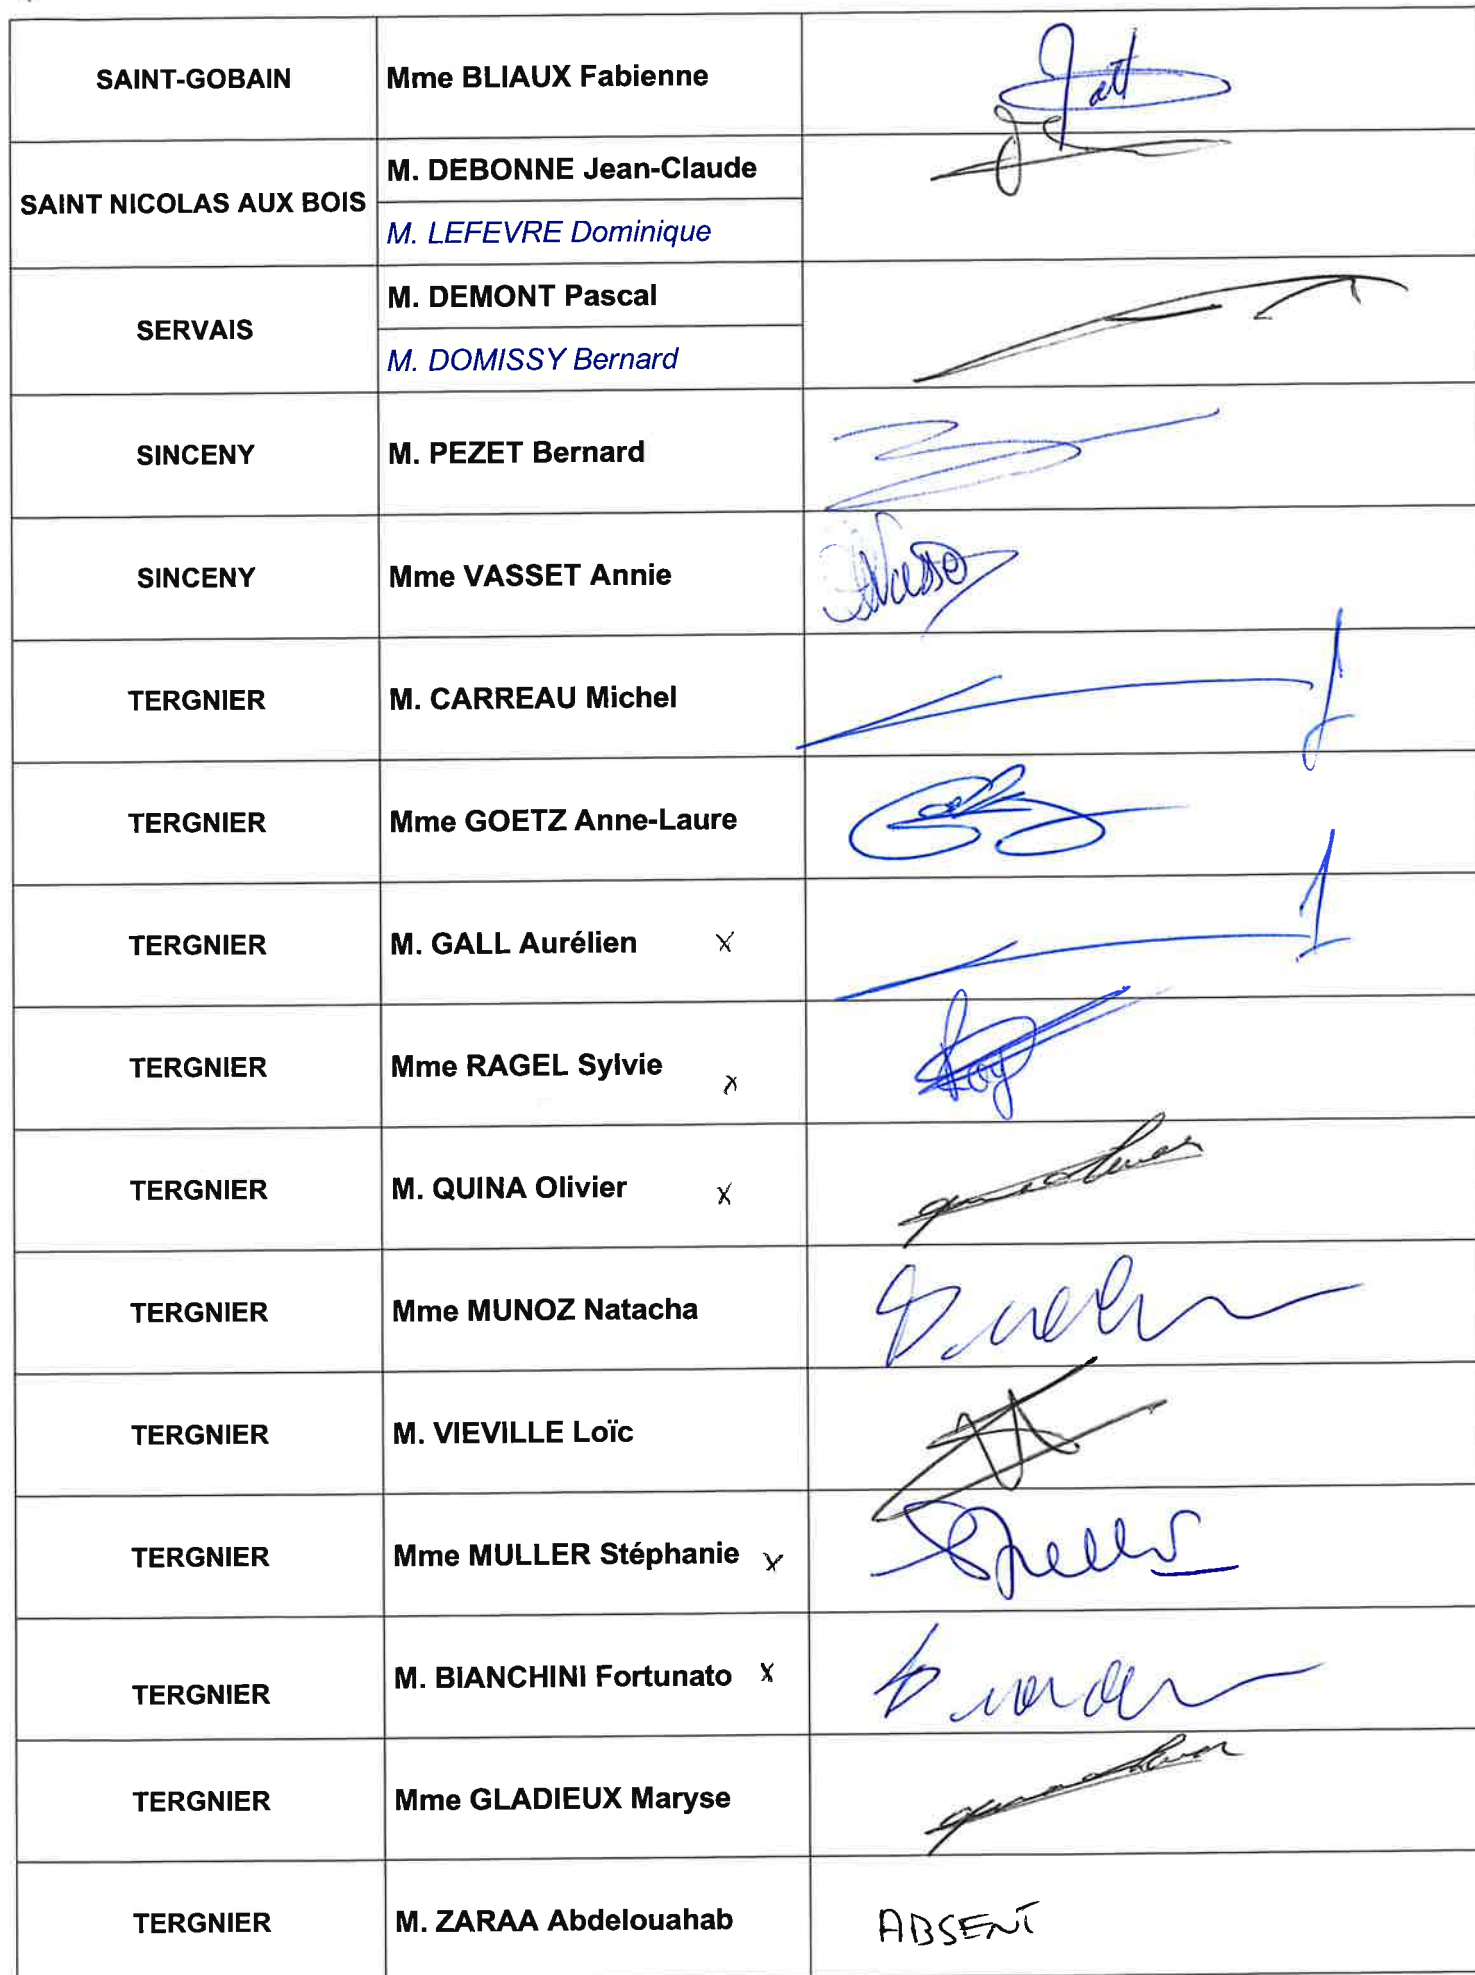 SAINT-GOBAIN
Mme BLIAUX Fabienne
SAINT NICOLAS AUX BOIS
M. DEBONNE Jean-Claude
M. LEFEVRE Dominique
SERVAIS
M. DEMONT Pascal
M. DOMISSY Bernard
SINCENY
M. PEZET Bernard
SINCENY
Mme VASSET Annie
TERGNIER
M. CARREAU Michel
TERGNIER
Mme GOETZ Anne-Laure
TERGNIER
M. GALL Aurélien X
TERGNIER
Mme RAGEL Sylvie X
TERGNIER
M. QUINA Olivier X
TERGNIER
Mme MUNOZ Natacha
TERGNIER
M. VIEVILLE Loïc
TERGNIER
Mme MULLER Stéphanie X
TERGNIER
M. BIANCHINI Fortunato X
TERGNIER
Mme GLADIEUX Maryse
TERGNIER
M. ZARAA Abdelouahab
ABSENT